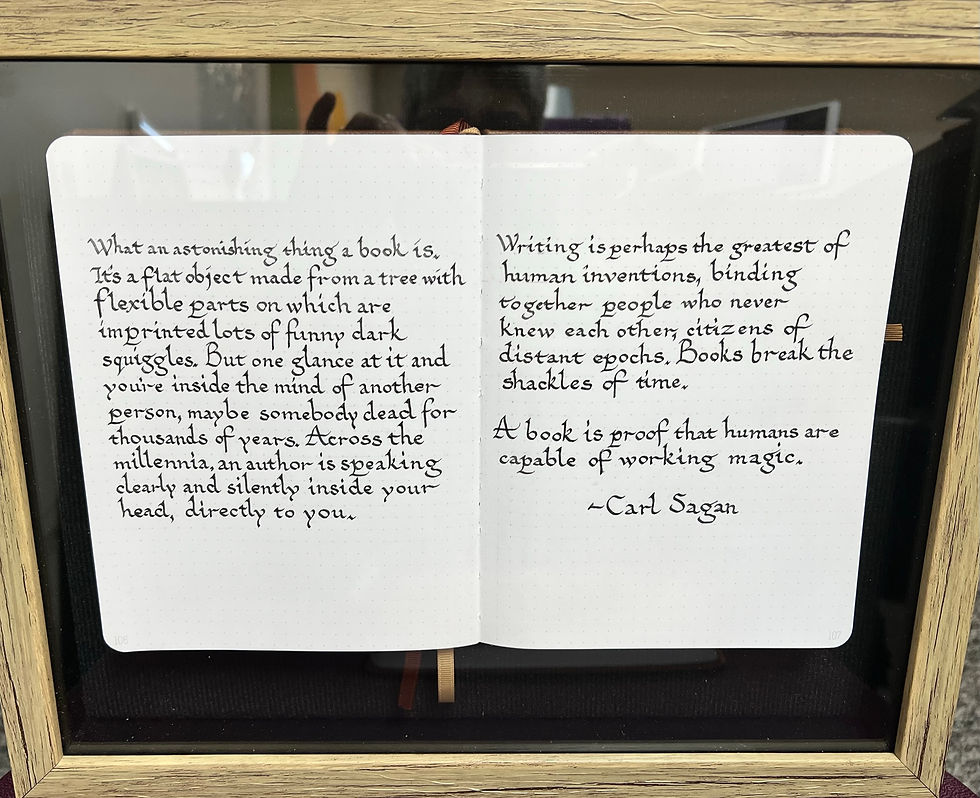 What an astonishing thing a book is.
It's a flat object made from a tree with
flexible parts on which are
imprinted lots of funny dark
squiggles. But one glance at it and
you're inside the mind of another
person, maybe somebody dead for
thousands of years. Across the
millennia, an author is speaking
clearly and silently inside your
head, directly to you.
106
Writing is perhaps the greatest of
human inventions, binding
together people who never
knew each other, citizens of
distant epochs. Books break the
shackles of time.
A book is proof that humans are
capable of working magic.
~Carl Sagan
107